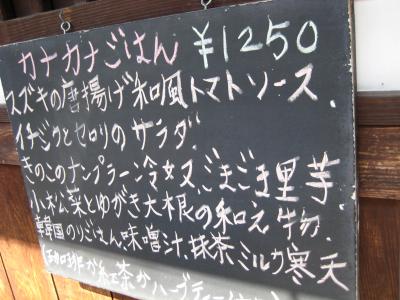 カナカナごはん ¥1250
スズキの唐揚げ和風トマトソース.
イチジクとセロリのサラダ.
きのこのナンプラー冷奴.ごまごま里芋
小松菜とゆがき大根の和え物.
韓国のりごはん.味噌汁.抹茶ミルク寒天
(珈琲か紅茶かハーブティー